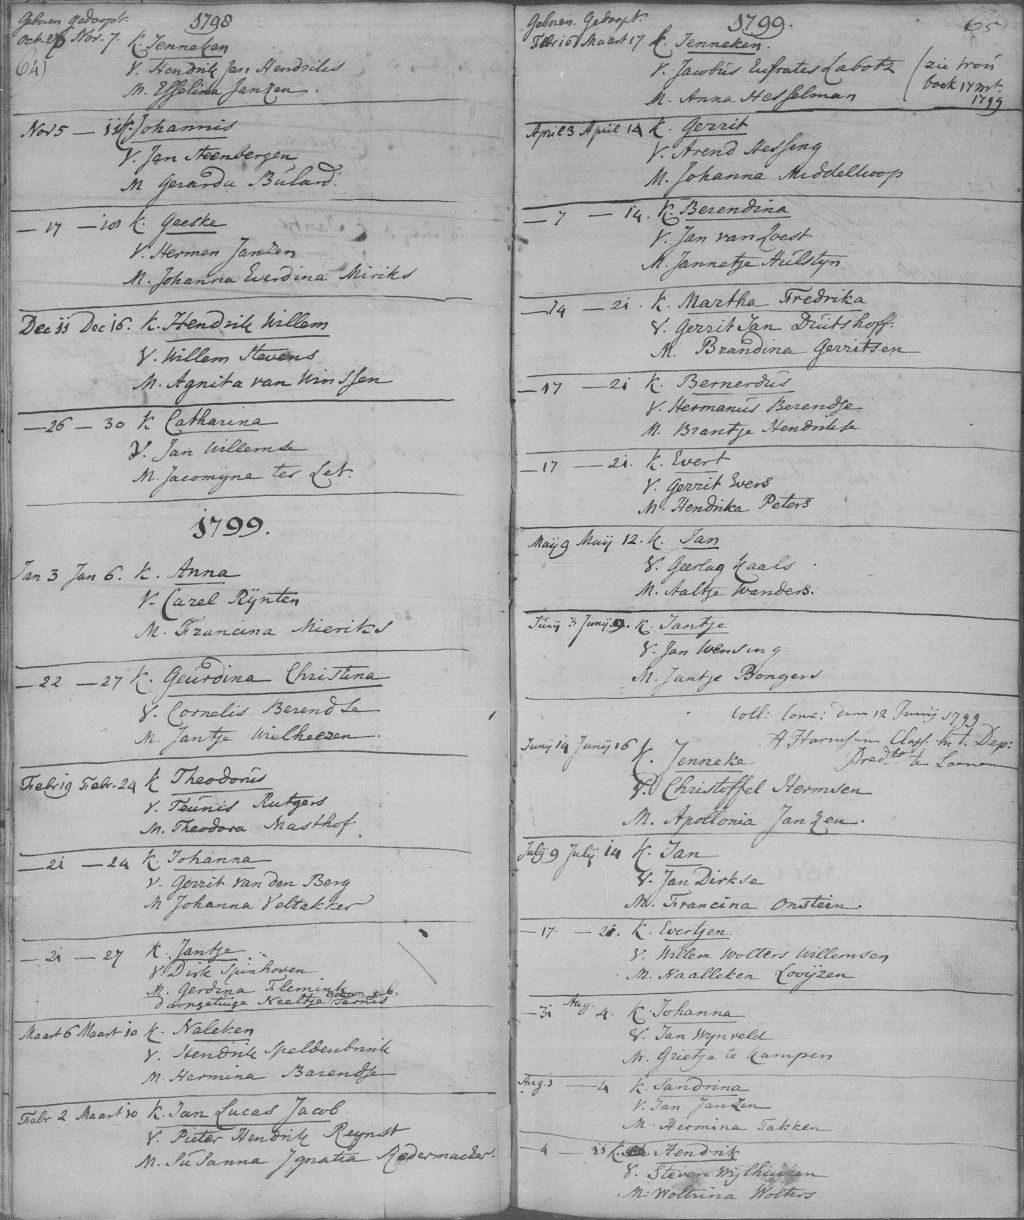 Geboren Gedoopt. 1798
Oct. 26 Nov. 7. K. Jenneken
(64)
V. Hendrik Jan Hendriks
M. Esselina Janzen.
Nov 5 — 11 K. Johannis
V. Jan Steenbergen
M. Gerarda Bulard.
— 17 — 18 K. Geeske
V. Hermen Janzen
M. Johanna Everdina Miriks
Dec 11 Dec 16. K. Hendrik Willem
V. Willem Stevens
M. Agnita van Winssen
— 26 — 30 K Catharina
V. Jan Willemse
M. Jacomijna ter Let.
1799.
Jan 3 Jan 6. K. Anna
V. Carel Rijnten
M. Francina Mieriks
— 22 — 27 K. Geurdina Christina
V. Cornelis Berendse
M. Jantje Wielheezen.
Febr 19 Febr. 24 K Theodorus
V. Teunis Rutgers
M. Theodora Masthof
— 21 — 24 K. Johanna
V. Gerrit van den Berg
M Johanna Veltakker
— 21 — 27 K. Jantje
V. Dirk Spinhoven
M. Gerdina Flemink
doopgetuige Neeltje
Maart 6 Maart 10 K. Naleken
V. Hendrik Speldenbrink
M. Hermina Barendse
Febr 2 Maart 10 K. Jan Lucas Jacob
V. Pieter Hendrik Reynst
M. Susanna Ignatia Redermacher.
Geboren. Gedoopt. 1799. 65
Febr 10 Maart 17 K. Jenneken.
V. Jacobus Eufrates Laboth (zie trou
boek 17 mrt.
1799
M. Anna Hesselman
April 3 April 14 K. Gerrit
V. Arend Hessing
M. Johanna Middelkoop
— 7 — 14. K. Berendina
V. Jan van Zoest
M. Jannetje Hulstyn
— 14 — 21. K. Martha Fredrika
V. Gerrit Jan Druitshoff.
M. Brandina Gerritsen
— 17 — 21 K. Bernerdus
V. Hermanus Berendse
M. Brantje Hendrikse
— 17 — 21. K. Evert
V. Gerrit Evers
M. Hendrika Peters
Maij 9 Maij 12. K. Jan
V. Geerlag Kaals
M. Aaltje Wanders.
Junij 3 Junij 9. K. Jantje
V. Jan Wensing
M. Jantje Bongers
Coll: Conc: den 12 Junij 1799
A Harmsen Class. h. t. Dep:
Predkt te Loenen
Junij 14 Junij 16 K. Jenneke
V. Christoffel Hermsen
M. Apollonia Janzen.
Julij 9 Julij 14 K. Jan
V. Jan Dirkse
M. Francina Onsteen.
— 17. — 21. K. Evertjen
V. Willem Wolters Willemsen
M. Naalleken Looijzen
— 31 Aug. 4. K. Johanna
V. Jan Wynveld
M. Grietje te Kampen
Aug. 3 — 4 K. Sandrina
V. Jan Janzen
M. Hermina Takken
— 4 — 11 K. Hendrik
V. Steven Wijlhuizen
M. Woltrina Wolters